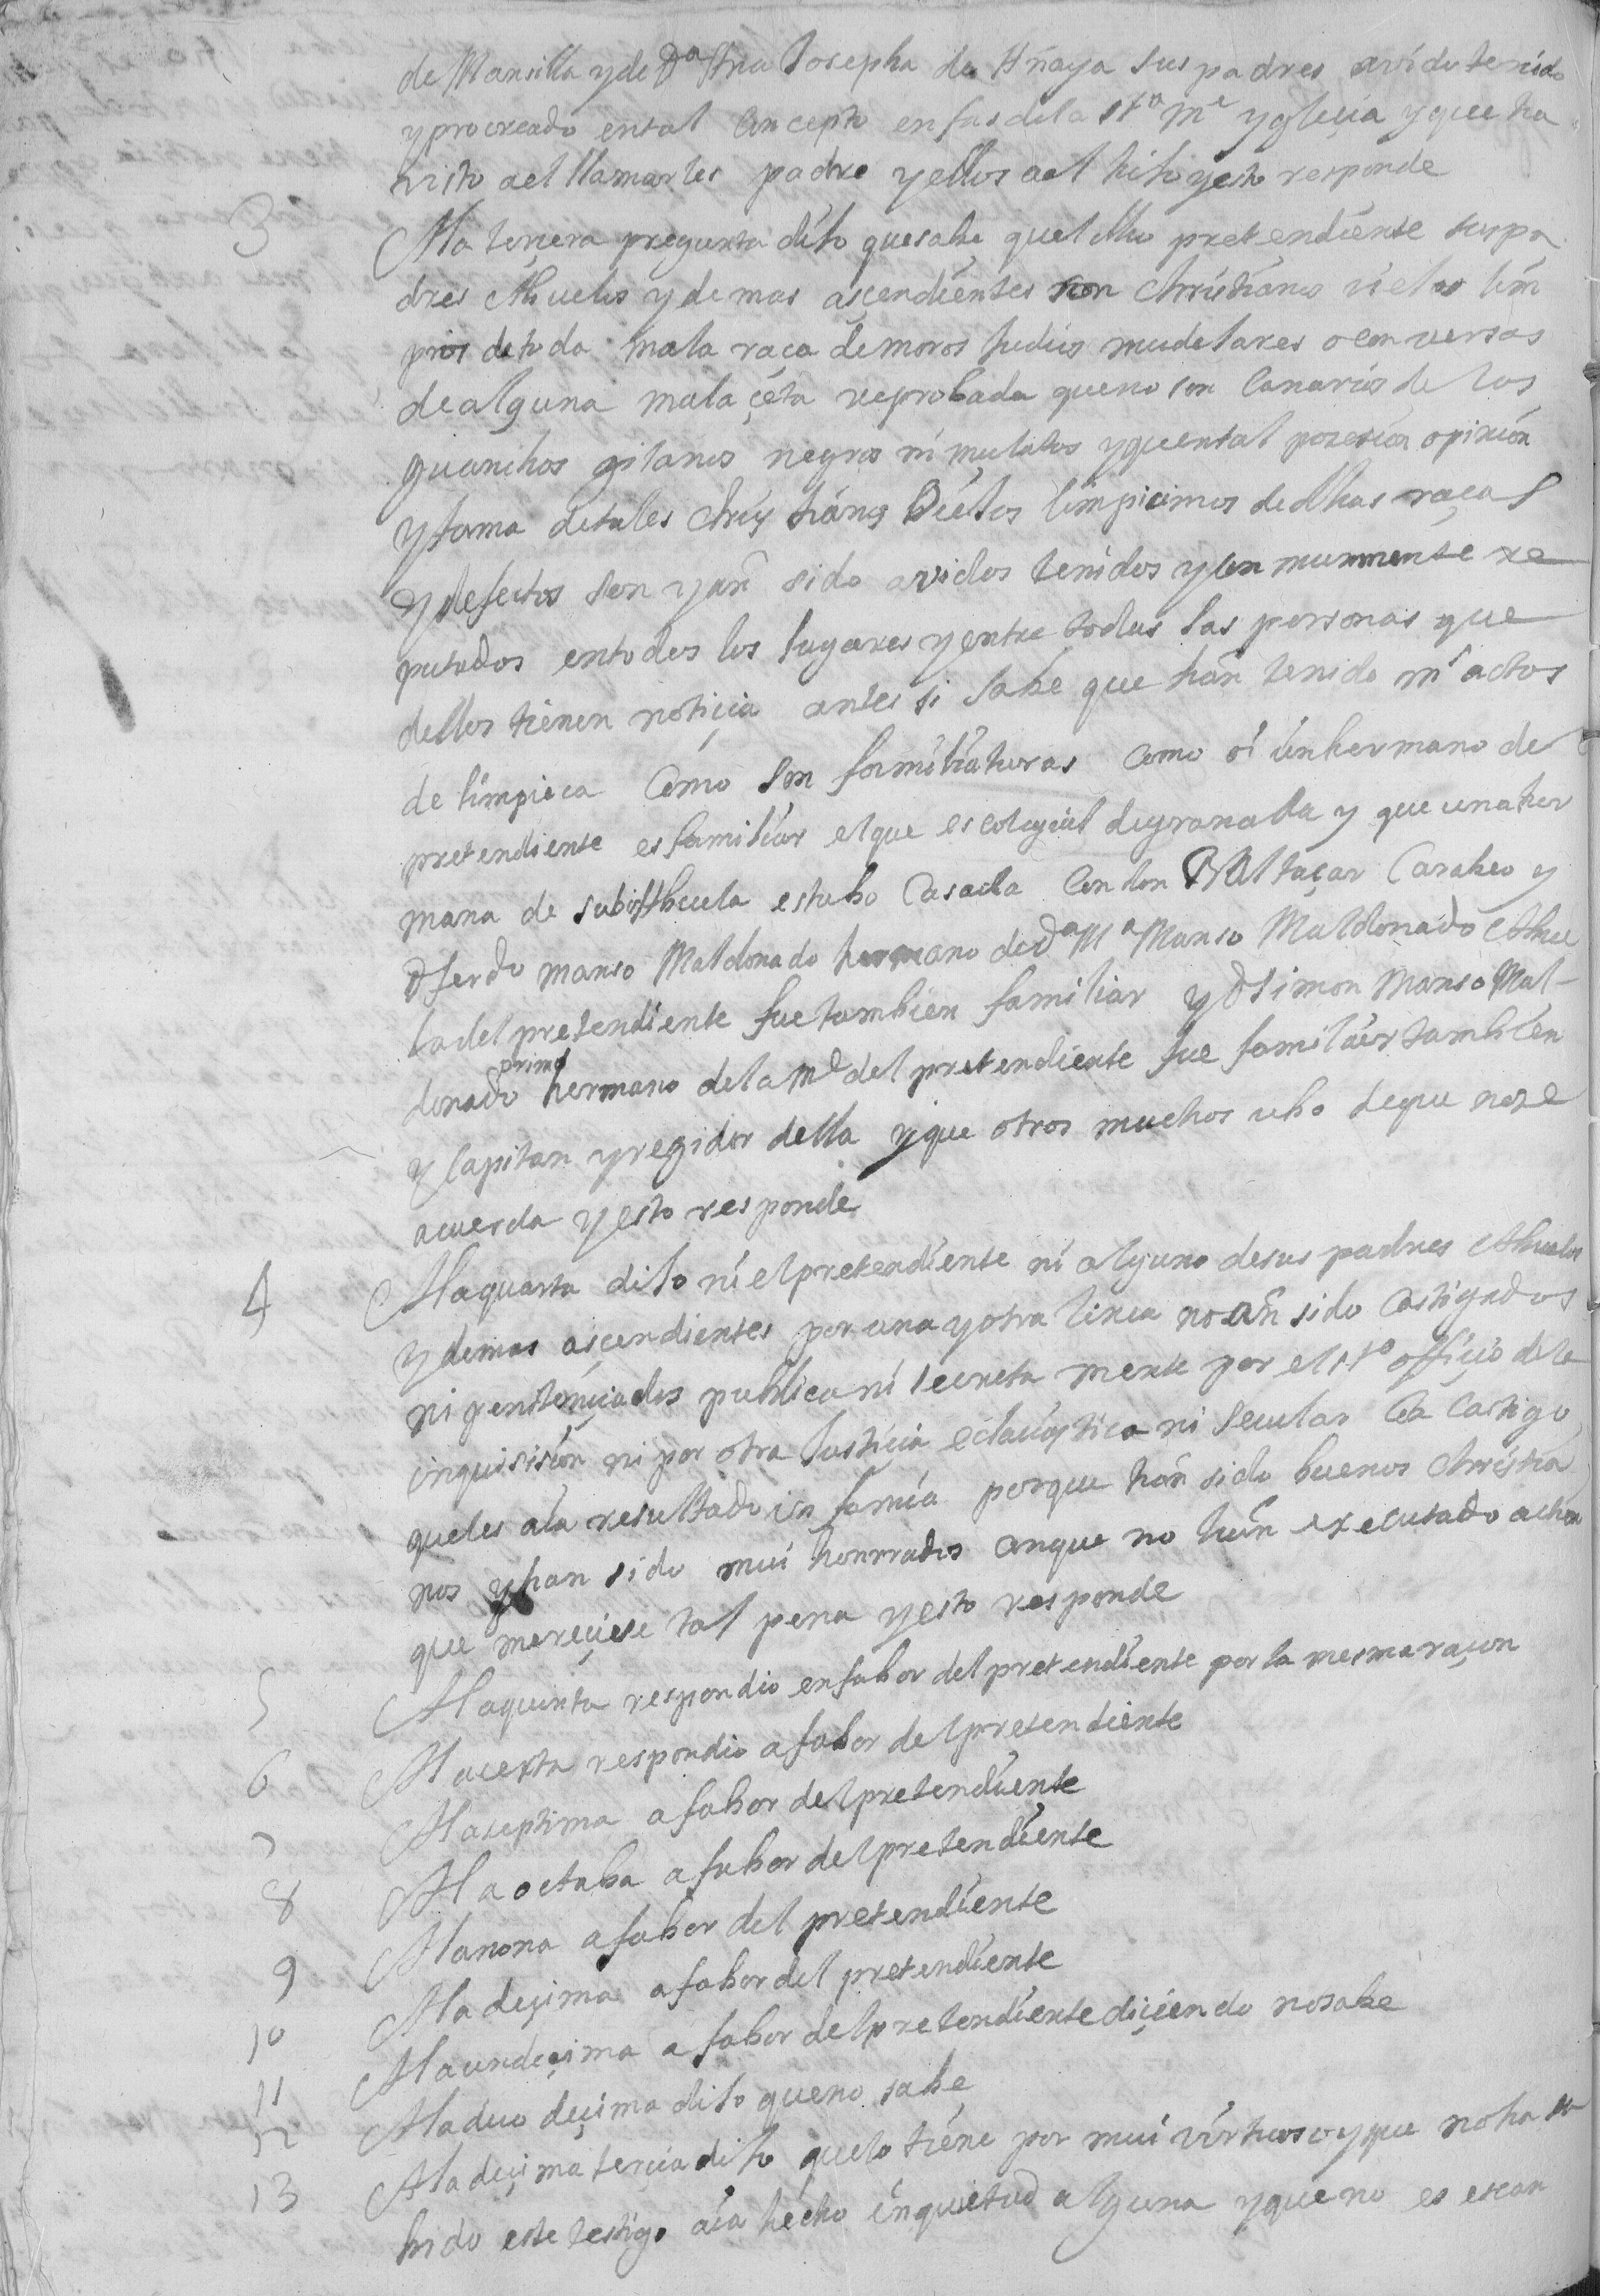 de Mansilla y de Dª Ana Josepha de Anaya sus padres avido tenido
y procreado en tal concepto en fas de la Stª Mᵉ yglecia y que ha
visto a el llamarles padre y ellos a el hijo y esto responde
3 A la tercera pregunta dijo que sabe que el dho pretendiente sus pa
dres Abuelos y demas ascendientes son christianos viejos lim
pios de toda mala raça de moros judios mudejares o conversos
de alguna mala çeta reprobada que no son Canarios de los
guanchos gitanos negros ni mulatos y que en tal pozecion opinion
y fama de tales chrisptianos viejos limpicimos de dhas raças
y defectos son y an sido avidos tenidos y comunmente re
putados en todos los lugares y entre todas las personas que
dellos tienen noticia antes si sabe que han tenido ms actos
de limpieça como son familiaturas como si un hermano de
pretendiente es familiar el que es colegial de granada y que una her
mana de subisAbuela estubo casada con don Baltaçar Carabeo y
D ferdo manso Maldonado hermano de Dª Mª Manso Maldonado Abue
la del pretendiente fue tambien familiar y D simon Manso Mal-
donado primo hermano de la Mᵉ del pretendiente fue familiar tambien
y Capitan y regidor della y que otros muchos ubo de que no se
acuerda y esto responde
4 A la quarta dijo ni el pretendiente ni alguno de sus padres Abuelos
y demas ascendientes por una y otra linea no an sido castigados
ni penitençiados publica ni secreta mente por el sto offiçio de la
inquisision ni por otra Justicia eclaciastica ni secular con castigo
que les aia resultado infamia porque han sido buenos christia
nos y han sido mui honrrados anque no han executado acion
que mereçiese tal pena y esto responde
5 A la quinta respondio en fabor del pretendiente por la mesma raçon
6 A la cexta respondio a fabor del pretendiente
7 A la septima a fabor del pretendiente
8 A la octaba a fabor del pretendiente
9 A la nona a fabor del pretendiente
10 A la deçima a fabor del pretendiente
11 A la undeçima a fabor del pretendiente diçiendo no sabe
12 A la duo deçima dijo que no sabe
13 A la deçima terçia dijo que lo tiene por mui virtuoso y que no ha sa
bido este testigo aia hecho inquietud alguna y que no es escan